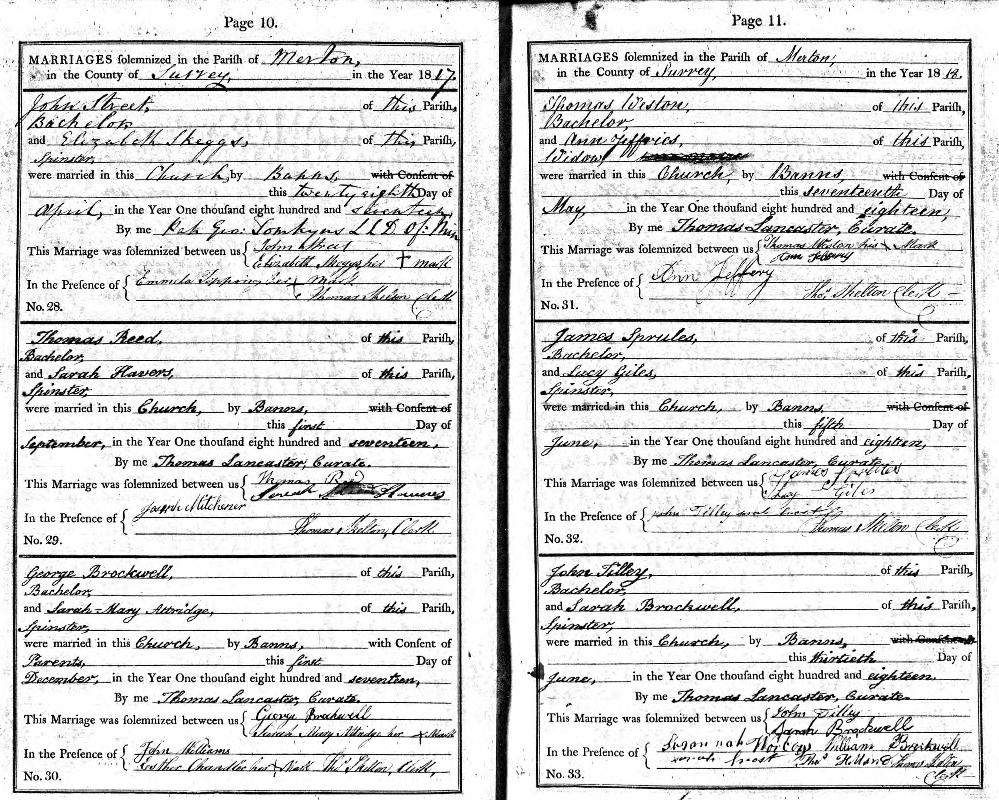 Page 10.
MARRIAGES solemnized in the Parish of Merton,
in the County of Surrey, in the Year 1817.
John Street, of this Parish,
Bachelor
and Elizabeth Skeggs, of this Parish,
Spinster,
were married in this Church, by Banns, with Consent of
this twenty eighth Day of
April, in the Year One thousand eight hundred and seventeen,
By me Geo: Tomkyns LLD Of: Min
This Marriage was solemnized between us { John Street
Elizabeth Skeggs her + mark
In the Presence of { her + Mark
Thomas Skelton Clerk
No. 28.
Thomas Reed, of this Parish,
Bachelor,
and Sarah Havers, of this Parish,
Spinster,
were married in this Church, by Banns, with Consent of
this first Day of
September, in the Year One thousand eight hundred and seventeen,
By me Thomas Lancaster, Curate.
This Marriage was solemnized between us { Thomas Reed
Sarah
In the Presence of { Joseph Mitchener
Thomas Skelton, Clerk
No. 29.
George Brockwell, of this Parish,
Bachelor,
and Sarah-Mary Attridge, of this Parish,
Spinster,
were married in this Church, by Banns, with Consent of
Parents, this first Day of
December, in the Year One thousand eight hundred and seventeen,
By me Thomas Lancaster, Curate.
This Marriage was solemnized between us { George Brockwell
Sarah Mary Attridge her + Mark
In the Presence of { John Williams
Esther Chandler her + Mark Thos Skelton, Clerk,
No. 30.
Page 11.
MARRIAGES solemnized in the Parish of Merton,
in the County of Surrey, in the Year 1818.
Thomas Weston, of this Parish,
Bachelor
and Ann Jeffries, of this Parish,
Widow
were married in this Church, by Banns, with Consent of
this seventeenth Day of
May, in the Year One thousand eight hundred and eighteen,
By me Thomas Lancaster, Curate.
This Marriage was solemnized between us { Thomas Weston his + Mark
Ann Jeffery
In the Presence of { Ann Jeffery
Thos Skelton Clerk
No. 31.
James Sprules, of this Parish,
Bachelor,
and Lucy Giles, of this Parish,
Spinster,
were married in this Church, by Banns, with Consent of
this fifth Day of
June, in the Year One thousand eight hundred and eighteen,
By me Thomas Lancaster, Curate.
This Marriage was solemnized between us { James
Giles
In the Presence of { John Tilley
Thomas Skelton Clerk
No. 32.
John Tilley, of this Parish,
Bachelor,
and Sarah Brockwell, of this Parish,
Spinster,
were married in this Church, by Banns, with Consent of
this thirtieth Day of
June, in the Year One thousand eight hundred and eighteen.
By me Thomas Lancaster, Curate
This Marriage was solemnized between us { John Tilley
Sarah Brockwell
In the Presence of { Susannah William Brockwell
Thos Thomas Skelton
Clerk
No. 33.